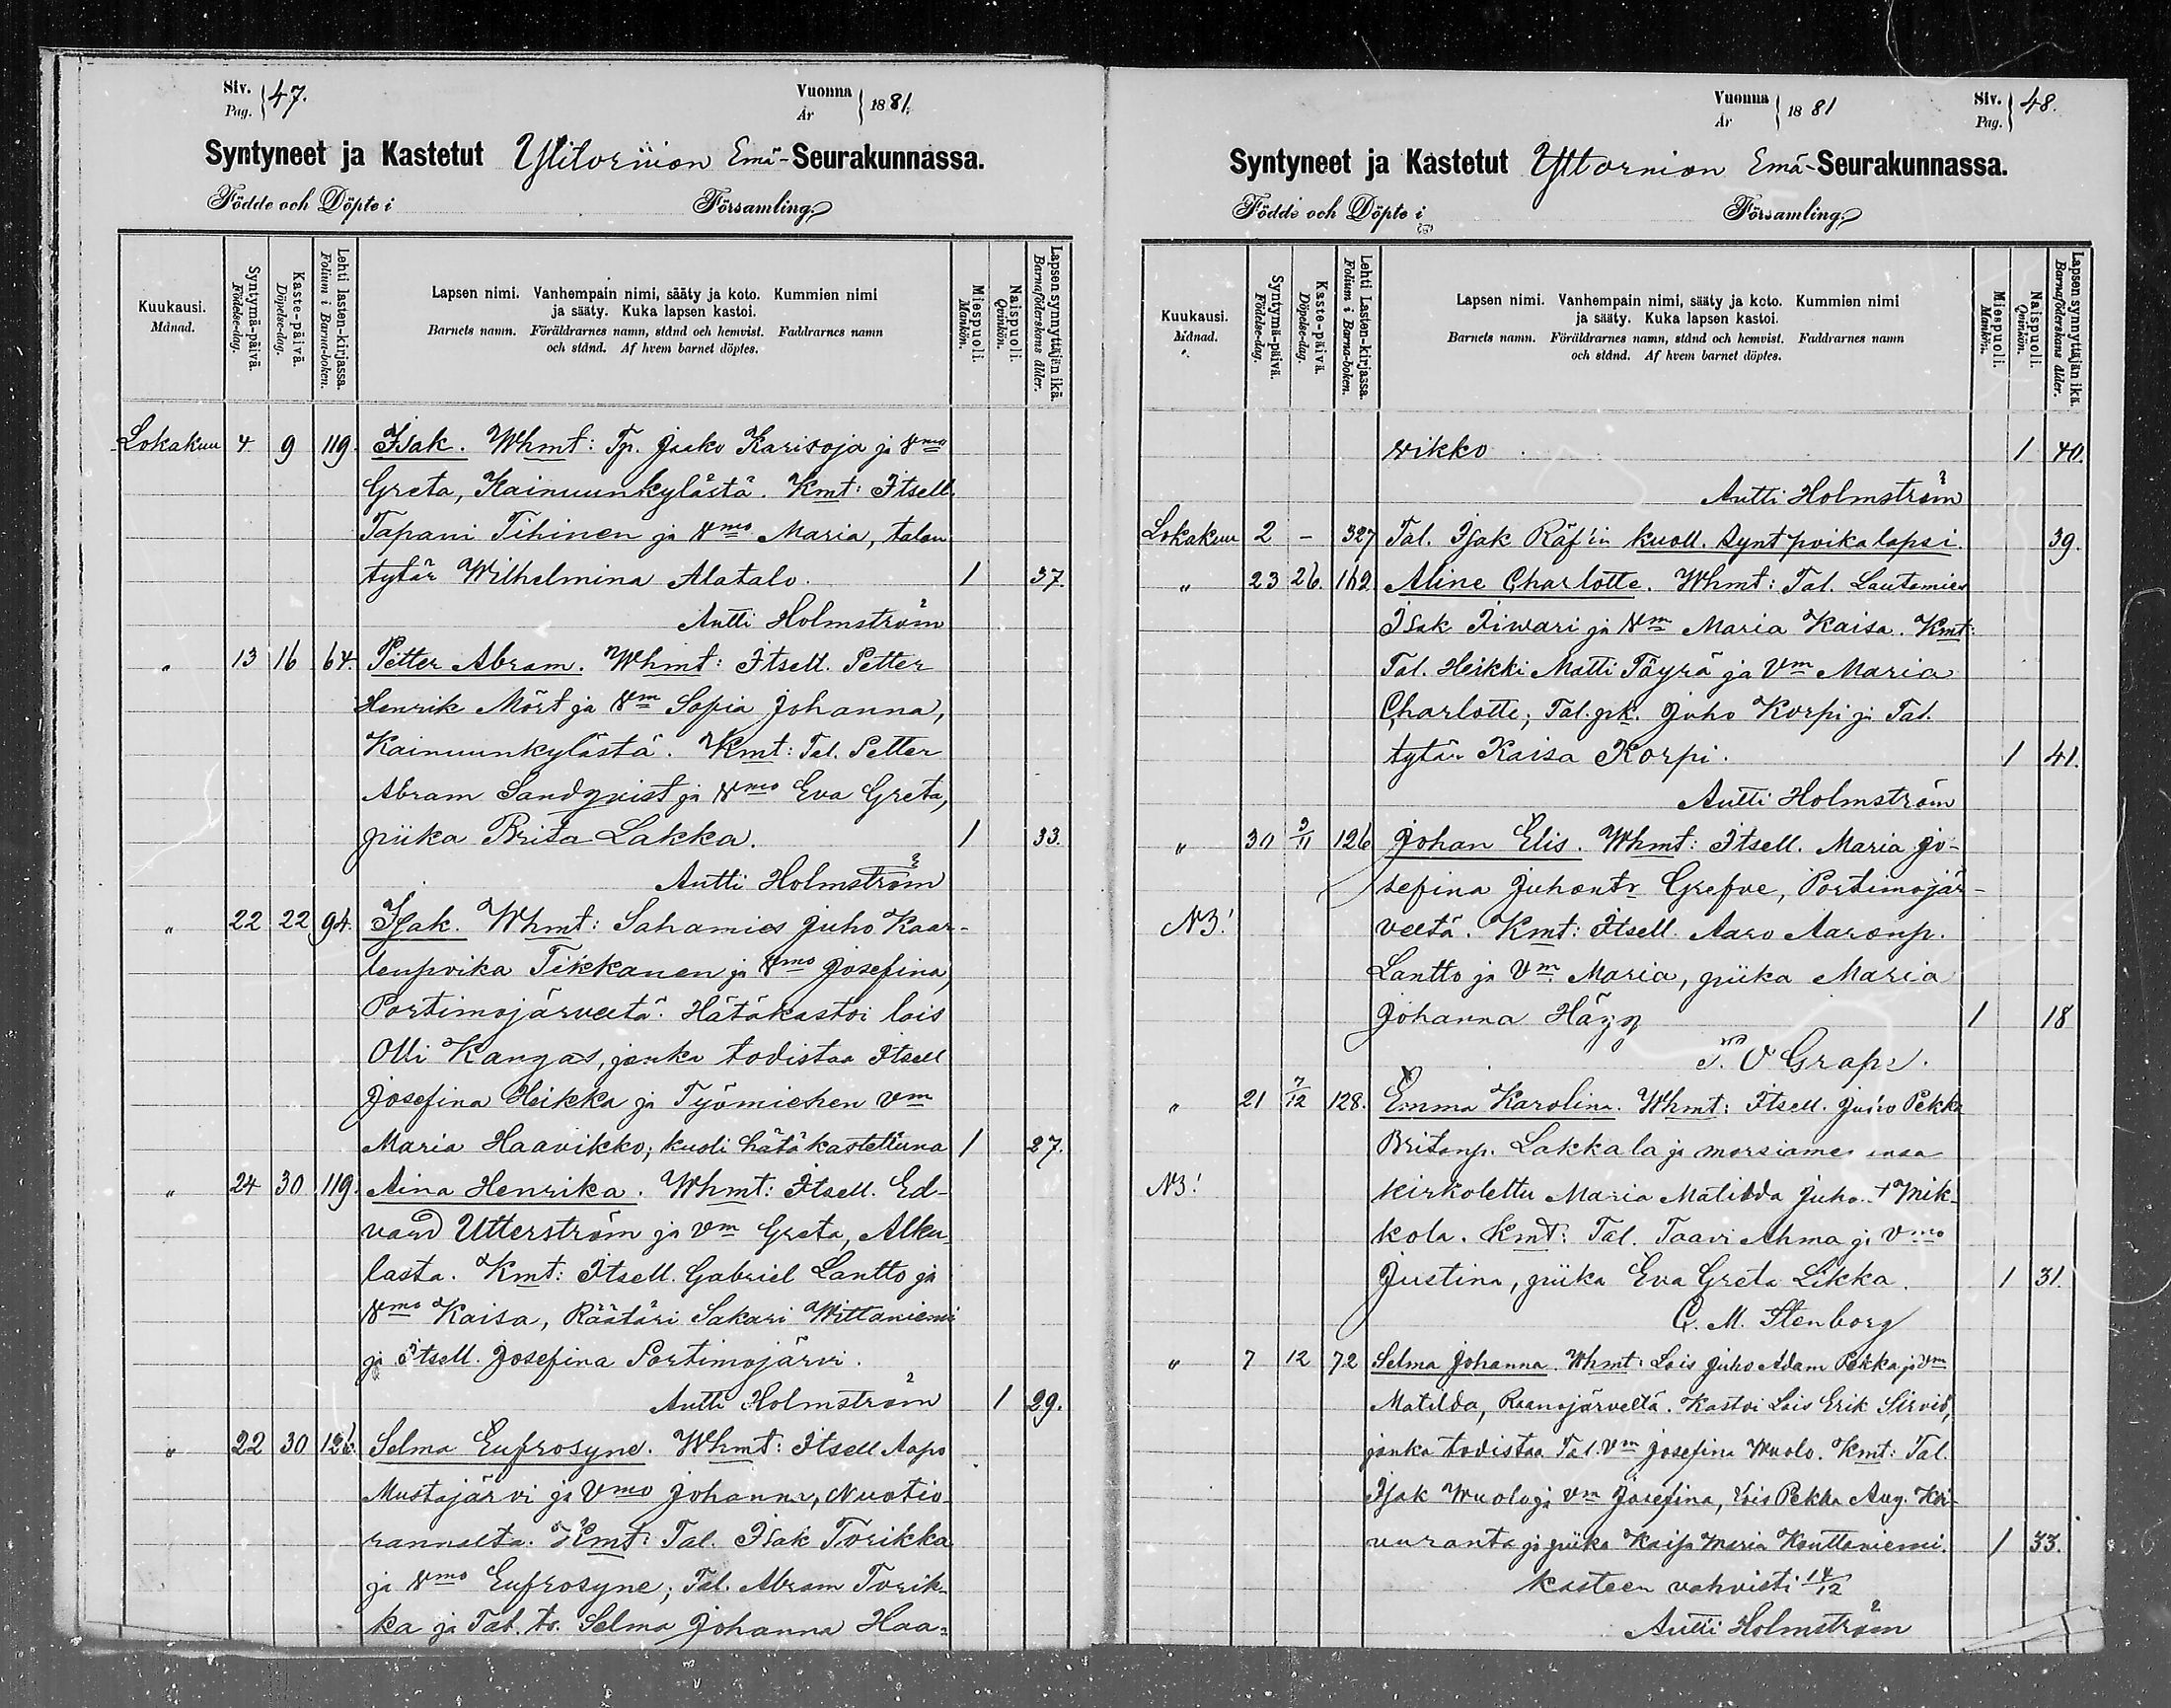 Siv. Pag. } 47.
Vuonna År } 1881.
Syntyneet ja Kastetut Ylitornion Emä-Seurakunnassa.
Födde och Döpte i Församling.
Kuukausi. Månad.
Syntymä-päivä. Födelse-dag.
Kaste-päivä. Döpelse-dag.
Lehti lasten-kirjassa. Folium i Barna-boken.
Lapsen nimi. Vanhempain nimi, sääty ja koto. Kummien nimi
ja sääty. Kuka lapsen kastoi.
Barnets namn. Föräldrarnes namn, stånd och hemvist. Faddrarnes namn
och stånd. Af hvem barnet döptes.
Miespuoli. Mankön.
Naispuoli. Qvinkön.
Lapsen synnyttäjän ikä. Barnaföderskans ålder.
Lokakuu 4. 9 119. Isak. Whmt: Tp. Jaako Karisoja ja Vmo
Greta, Kainuunkylästä. Kmt: Itsell.
Tapani Tihinen ja Vmo Maria, talon
tytär Wilhelmina Alatalo. 1 37.
Antti Holmström
" 13 16 64. Petter Abram. Whmt: Itsell. Petter
Henrik Mört ja Vm Sopia Johanna,
Kainuunkylästä. Kmt: Tal. Petter
Abram Sandqvist ja Vmo Eva Greta,
piika Brita Lakka. 1 33.
Antti Holmström
" 22 22 94. Isak. Whmt: Sahamies Juho Kaar-
lenpoika Tikkanen ja Vmo Josefina,
Portimojärveltä. Hätäkastoi lois
Olli Kangas, jonka todistaa Itsell
Josefina Heikka ja Työmiehen Vm
Maria Haavikko; kuoli hätäkastettuna 1 27.
" 24 30 119. Aina Henrika. Whmt: Itsell. Ed-
vard Utterström ja Vm Greta, Alku-
lasta. Kmt: Itsell. Gabriel Lantto ja
Vmo Kaisa, Räätäri Sakari Wittaniemi
ja Itsell. Josefina Portimojärvi.
Antti Holmström 1 29.
" 22 30 126. Selma Eufrosyne. Whmt: Itsell Aapo
Mustajärvi ja Vmo Johanna, Nuotio-
rannalta. Kmt: Tal. Isak Torikka
ja Vmo Eufrosyne; Tal. Abram Torik-
ka ja Tal. tr. Selma Johanna Haa-
Vuonna År } 1881
Siv. Pag. } 48.
Syntyneet ja Kastetut Ylitornion Emä-Seurakunnassa.
Födde och Döpte i Församling.
Kuukausi. Månad.
Syntymä-päivä. Födelse-dag.
Kaste-päivä. Döpelse-dag.
Lehti Lasten-kirjassa. Folium i Barna-boken.
Lapsen nimi. Vanhempain nimi, sääty ja koto. Kummien nimi
ja sääty. Kuka lapsen kastoi.
Barnets namn. Föräldrarnes namn, stånd och hemvist. Faddrarnes namn
och stånd. Af hvem barnet döptes.
Miespuoli. Mankön.
Naispuoli. Qvinkön.
Lapsen synnyttäjän ikä. Barnaföderskans ålder.
vikko 1 40.
Antti Holmström
Lokakuu 2 - 327 Tal. Isak Räf'in kuoll. synt poikalapsi. 39.
" 23 26. 162 Aline Charlotte. Whmt: Tal. Lautamies
Isak Tiwari ja Vm Maria Kaisa. Kmt:
Tal. Heikki Matti Töyrä ja Vm Maria
Charlotte; Tal. pk. Juho Korpi ja Tal.
tytär Kaisa Korpi. 1 41.
Antti Holmström
" 30 3/11 126 Johan Elis. Whmt: Itsell. Maria Jo-
sefina Juhontr Grefve, Portimojär-
NB! veltä. Kmt: Itsell. Aaro Aaronp.
Lantto ja Vm Maria, piika Maria
Johanna Hägg 1 18
P. V Grape.
" 21 7/12 128. Emma Karolina. Whmt: Itsell. Juho Pekka
Britanp. Lakkala ja morsiamensa
NB! kirkolettu Maria Matilda Juho. t Mik-
kola. Kmt: Tal. Taavi Ahma ja Vmo
Justina, piika Eva Greta Likka. 1 31.
C. M. Stenborg
" 7 12 72 Selma Johanna. Whmt: Lois Juho Adam Pekka ja Vm
Matilda, Raanojärveltä. Kastoi Lois Erik Sirviö,
jonka todistaa Tal. Vm Josefina Wuolo. Kmt: Tal.
Isak Wuolo ja Vm Josefina, Lois Pekka Aug. Koi-
vuranta ja piika Kaisa Maria Kanttaniemi. 1 33.
kasteen vahvisti 14/12
Antti Holmström